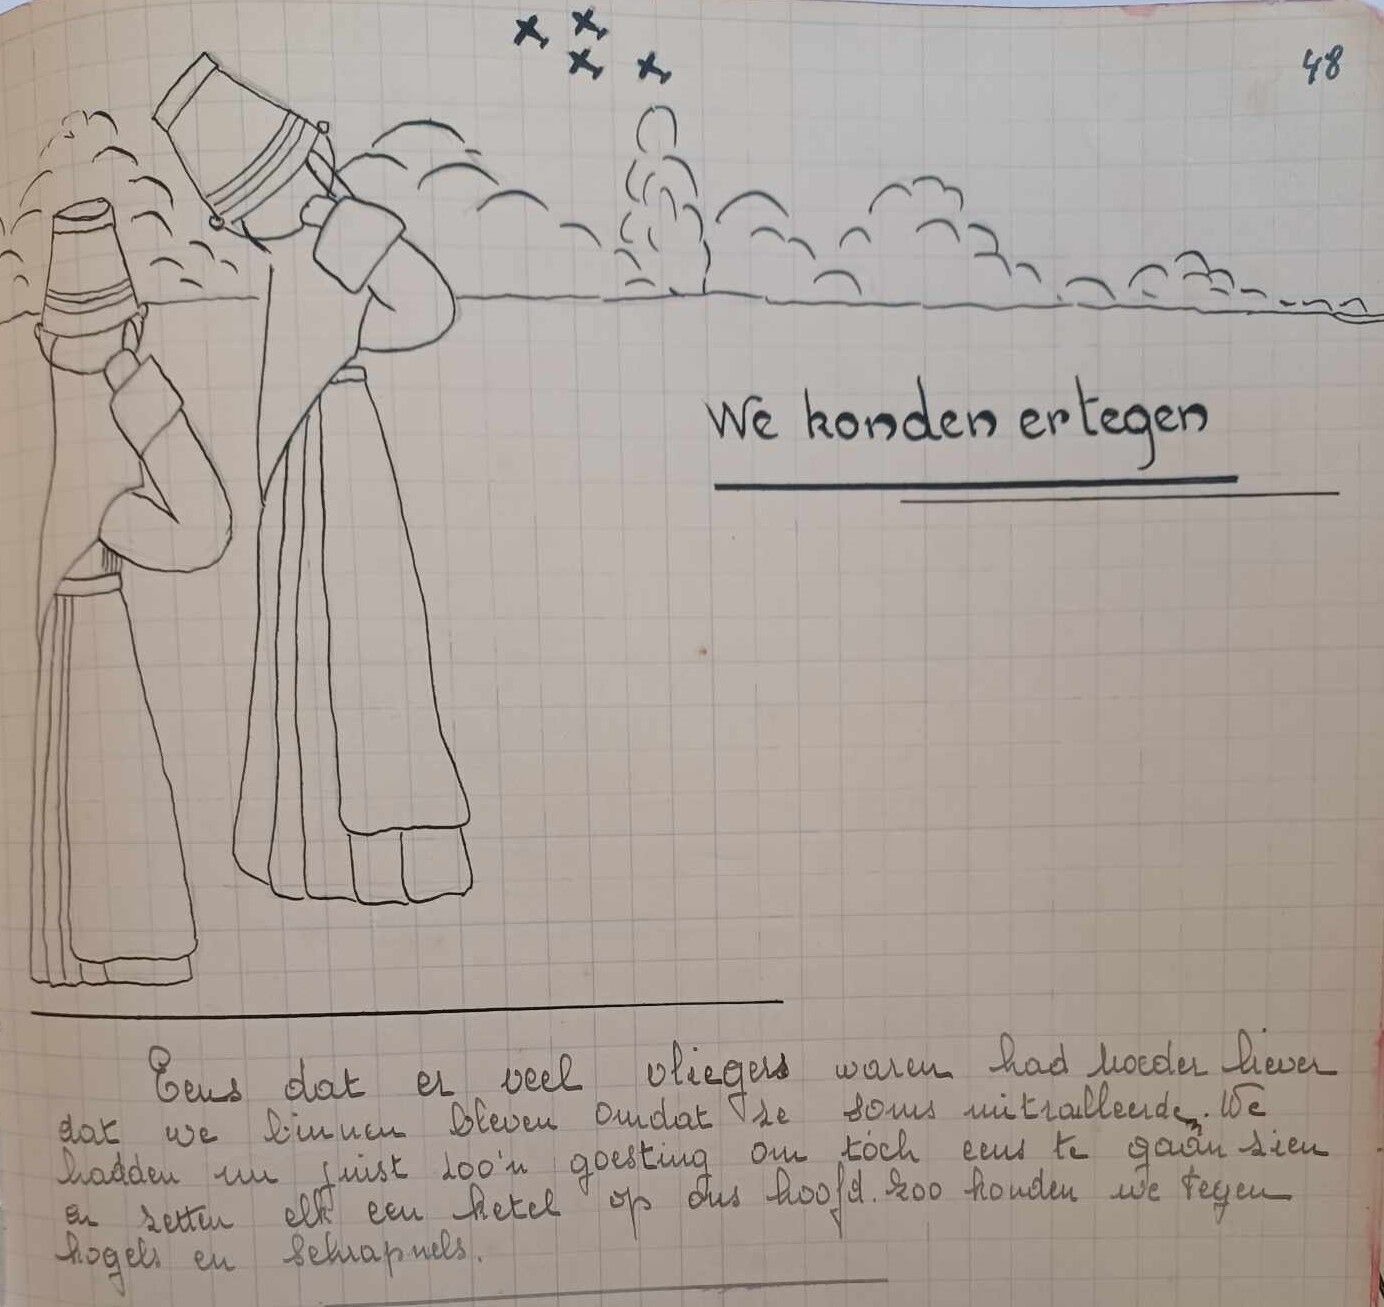 48
We konden ertegen
Eens dat er veel vliegers waren had moeder liever
dat we binnen bleven omdat ze soms mitralleerden. We
hadden nu juist zoo'n goesting om tóch eens te gaan zien
en zetten elk een ketel op ons hoofd. Zoo konden we tegen
kogels en schrapnels.